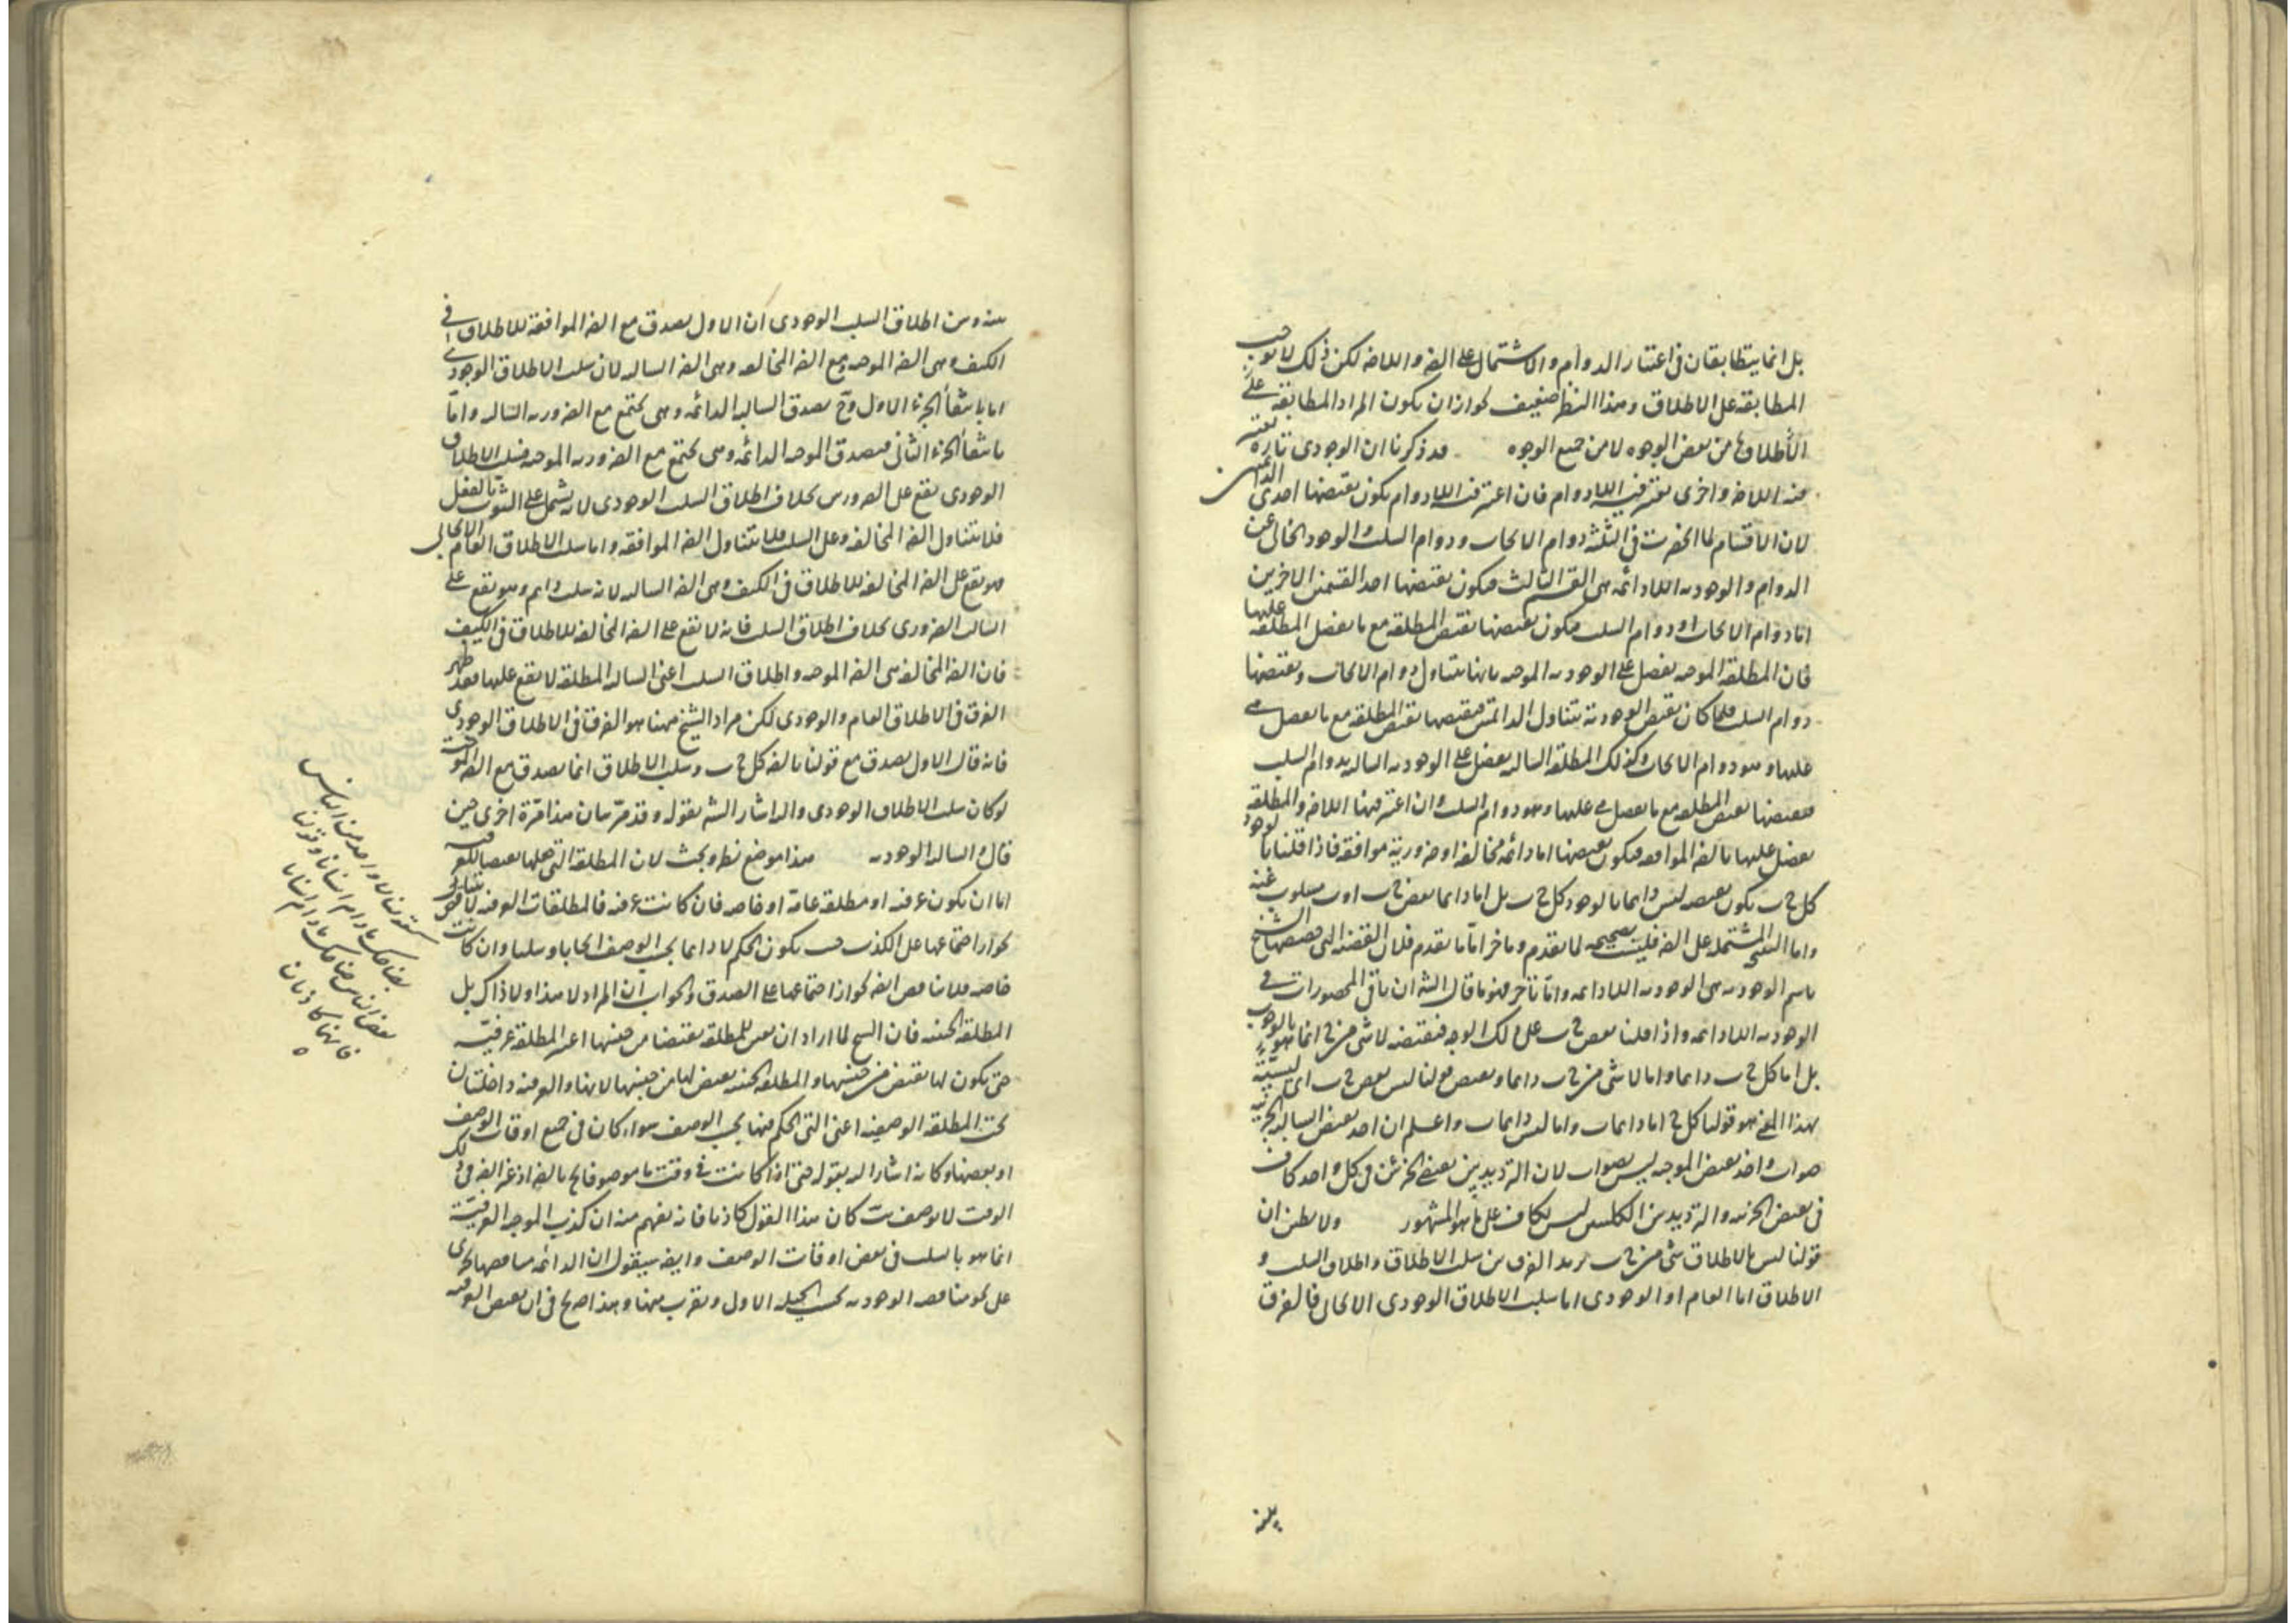 بل انما يتطابقان فى اعتبار الدوام والاشتمال على الضر واللاضر لكن ذلك لا يوجب
المطابقة على الاطلاق وهذا النظر ضعيف لجواز ان يكون المراد المطابقة على
الاطلاق من بعض الوجوه لا من جميع الوجوه قد ذكرنا ان الوجودى تارة يعتبر
فيه اللاضر واخرى يعتبر فيه اللادوام فان اعتبر فيه اللادوام يكون نقيضها احدى الدائمتين
لان الاقسام لما انحصرت فى الثلثة دوام الايجاب ودوام السلب والوجود الخالى عن
الدوام والوجودية اللادائمة هى القسم الثالث فيكون نقيضها احد القسمين الاخرين
اما دوام الايجاب او دوام السلب فيكون نقيضها نقيض المطلقة مع ما يفضل المطلقة عليها
فان المطلقة الموجبة يفضل على الوجودية الموجبة بانها يتناول دوام الايجاب ونقيضها
دوام السلب فلما كان نقيض الوجودية يتناول الدائمتين فنقيضها نقيض المطلقة مع ما يفضل هى
عليها وهو دوام الايجاب وكذلك المطلقة السالبة يفضل على الوجودية السالبة بدوام السلب
فنقيضها نقيض المطلقة مع ما يفضل هى عليها وهو دوام السلب وان اعتبر فيها اللاضر والمطلقة
يفضل عليها بالضر الموافقة فيكون نقيضها اما دائمة مخالفة او ضرورية موافقة فاذا قلنا بالوجود
كل ج ب يكون نقيضه ليس دائما بالوجود كل ج ب بل اما دائما بعض ج ب او ب مسلوب عنه
واما النقيض المشتمله على الضر فليست بصحيحه لما تقدم وما خر اما ما تقدم فلان القضية التى خصصها الشيخ
باسم الوجودية هى الوجودية اللادائمة واما تاخر فهو ما قال الشه ان باقى المحصورات فى
الوجودية اللادائمة واذا قلنا بعض ج ب على ذلك الوجه فنقيضه لا شى من ج انما هو بالوجود ب
بل اما كل ج ب دائما واما لا شى من ج ب دائما ونقيض قولنا ليس بعض ج ب اى ليسية
بهذا المعنى هو قولنا كل ج اما دائما ب واما ليس دائما ب واعلم ان احد نقيض السالبة الجزئية
صواب واخذ نقيض الموجبة ليس بصواب لان الترديد بين نقيضى الجزئين فى كل واحد كاف
فى نقيض الجزئية والترديد بين الكليتين ليس بكاف على ما هو المشهور ولا يظن ان
قولنا ليس بالاطلاق شى من ج ب يريد الفرق بين سلب الاطلاق واطلاق السلب و
الاطلاق اما العام او الوجودى اما سلب الاطلاق الوجودى الايجابى فالفرق
بينه وبين اطلاق السلب الوجودى ان الاول يصدق مع الضر الموافقة للاطلاق فى
الكيف وهى الضر الموجبة ومع الضر المخالفة وهى الضر السالبه لان سلب الاطلاق الوجودى
اما بانتفاء الجزء الاول وح يصدق السالبة الدائمه وهى يجتمع مع الضرورية السالبه واما
بانتفاء الجزء الثانى فيصدق الموجبه الدائمه وهى يجتمع مع الضرورية الموجبه فسلب الاطلاق
الوجودى يقع على الضرورتين بخلاف اطلاق السلب الوجودى لانه يشتمل على الثبوت بالفعل
فلا يتناول الضر المخالفه وعلى السلب فلا يتناول الضر الموافقه واما سلب الاطلاق العام الايجابى
فهو يقع على الضر المخالفه للاطلاق فى الكيف وهى الضر السالبه لانه سلب دائم وهو يقع على
السالب الضرورى بخلاف اطلاق السلب فانه لا يقع على الضر المخالفه للاطلاق فى الكيف
فان الضر المخالفه هى الضر الموجبه واطلاق السلب اعنى السالبه المطلقة لا يقع عليها فقد ظهر
الفرق فى الاطلاق العام والوجودى لكن مراد الشيخ ههنا هو الفرق فى الاطلاق الوجودى
فانه قال الاول يصدق مع قولنا بالضر كل ج ب وسلب الاطلاق انما يصدق مع الضر الموجبة
لو كان سلب الاطلاق الوجودى واليه اشار الشه بقوله وقد مر بيان هذا مرة اخرى حين
قال والسالبه الوجوديه هذا موضع نظر وبحث لان المطلقة التى جعلها نقيضا للعرفية
اما ان يكون عرفية او مطلقة عامة او خاصه فان كانت عرفية فالمطلقات العرفية لا يتناقض
لجواز اجتماعها على الكذب حيث يكون الحكم لا دائما بحسب الوصف ايجابا وسلبا وان كانت
خاصة فلا تناقض ايضه لجواز اجتماعهما على الصدق والجواب ان المراد لا هذا ولا ذاك بل
المطلقة الحينية فان الشيخ لما اراد ان يعين للمطلقة نقيضا من جنسها اعتبر المطلقة عرفية
حتى يكون لها نقيض من جنسها والمطلقة الحينية نقيض لها من جنسها لانها والعرفية داخلتان
تحت المطلقة الوصفية اعنى التى الحكم فيها بحسب الوصف سواء كان فى جميع اوقات الوصف
او بعضها وكانه اشار اليه بقوله حتى اذا كانت فى وقت ما موصوفا بج بالضر او غير الضر فى ذلك
الوقت لا يوصف بب كان هذا القول كاذبا فانه يفهم منه ان كذب الموجبة العرفية
انما هو بالسلب فى بعض اوقات الوصف وايضه سيقول ان الدائمه مناقضها يجرى
على نحو مناقضة الوجودية بحسب الحيلة الاولى ويقرب منها وهذا صريح فى ان نقيض العرفية
كقولنا لا واحد من الناس
بضاحك ما دام انسانا وقولنا
بعض الناس ضاحك ما دام انسانا
فانهما كاذبان